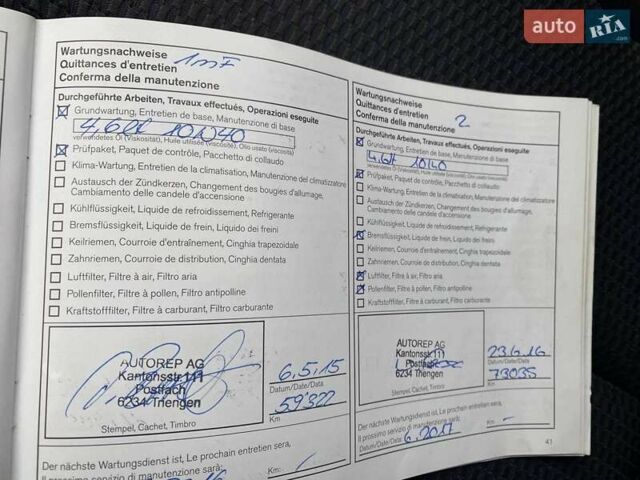 auto RIA
.com
Wartungsnachweise
Quittances d'entretien
Conferma della manutenzione
Durchgeführte Arbeiten, Travaux effectués, Operazioni eseguite
Grundwartung, Entretien de base, Manutenzione di base
4,6lt 10W40
verwendetes Öl (Viskosität), Huile utilisée (viscosité), Olio usato (viscosità)
Prüfpaket, Paquet de contrôle, Pacchetto di collaudo
Klima-Wartung, Entretien de la climatisation, Manutenzione del climatizzatore
Austausch der Zündkerzen, Changement des bougies d'allumage,
Cambiamento delle candele d'accensione
Kühlflüssigkeit, Liquide de refroidissement, Refrigerante
Bremsflüssigkeit, Liquide de frein, Liquido dei freini
Keilriemen, Courroie d'entraînement, Cinghia trapezoidale
Zahnriemen, Courroie de distribution, Cinghia dentata
Luftfilter, Filtre à air, Filtro aria
Pollenfilter, Filtre à pollen, Filtro antipolline
Kraftstofffilter, Filtre à carburant, Filtro carburante
AUTOREP AG
Kantonsstr.111
Postfach
6234 Triengen
Stempel, Cachet, Timbro
6.5.15
Datum/Date/Data
59322
Km
Der nächste Wartungsdienst ist, Le prochain entretien sera,
Il prossimo servizio di manutenzione sarà:
Wartungsnachweise
Quittances d'entretien
Conferma della manutenzione
2
Durchgeführte Arbeiten, Travaux effectués, Operazioni eseguite
Grundwartung, Entretien de base, Manutenzione di base
4,6lt 10/40
verwendetes Öl (Viskosität), Huile utilisée (viscosité), Olio usato (viscosità)
Prüfpaket, Paquet de contrôle, Pacchetto di collaudo
Klima-Wartung, Entretien de la climatisation, Manutenzione del climatizzatore
Austausch der Zündkerzen, Changement des bougies d'allumage,
Cambiamento delle candele d'accensione
Kühlflüssigkeit, Liquide de refroidissement, Refrigerante
Bremsflüssigkeit, Liquide de frein, Liquido dei freini
Keilriemen, Courroie d'entraînement, Cinghia trapezoidale
Zahnriemen, Courroie de distribution, Cinghia dentata
Luftfilter, Filtre à air, Filtro aria
Pollenfilter, Filtre à pollen, Filtro antipolline
Kraftstofffilter, Filtre à carburant, Filtro carburante
AUTOREP AG
Kantonsstr.111
Postfach
6234 Triengen
Stempel, Cachet, Timbro
23.6.16
Datum/Date/Data
73035
Km
Der nächste Wartungsdienst ist, Le prochain entretien sera,
Il prossimo servizio di manutenzione sarà:
Datum/Date/Data 6.2017 Km -
41